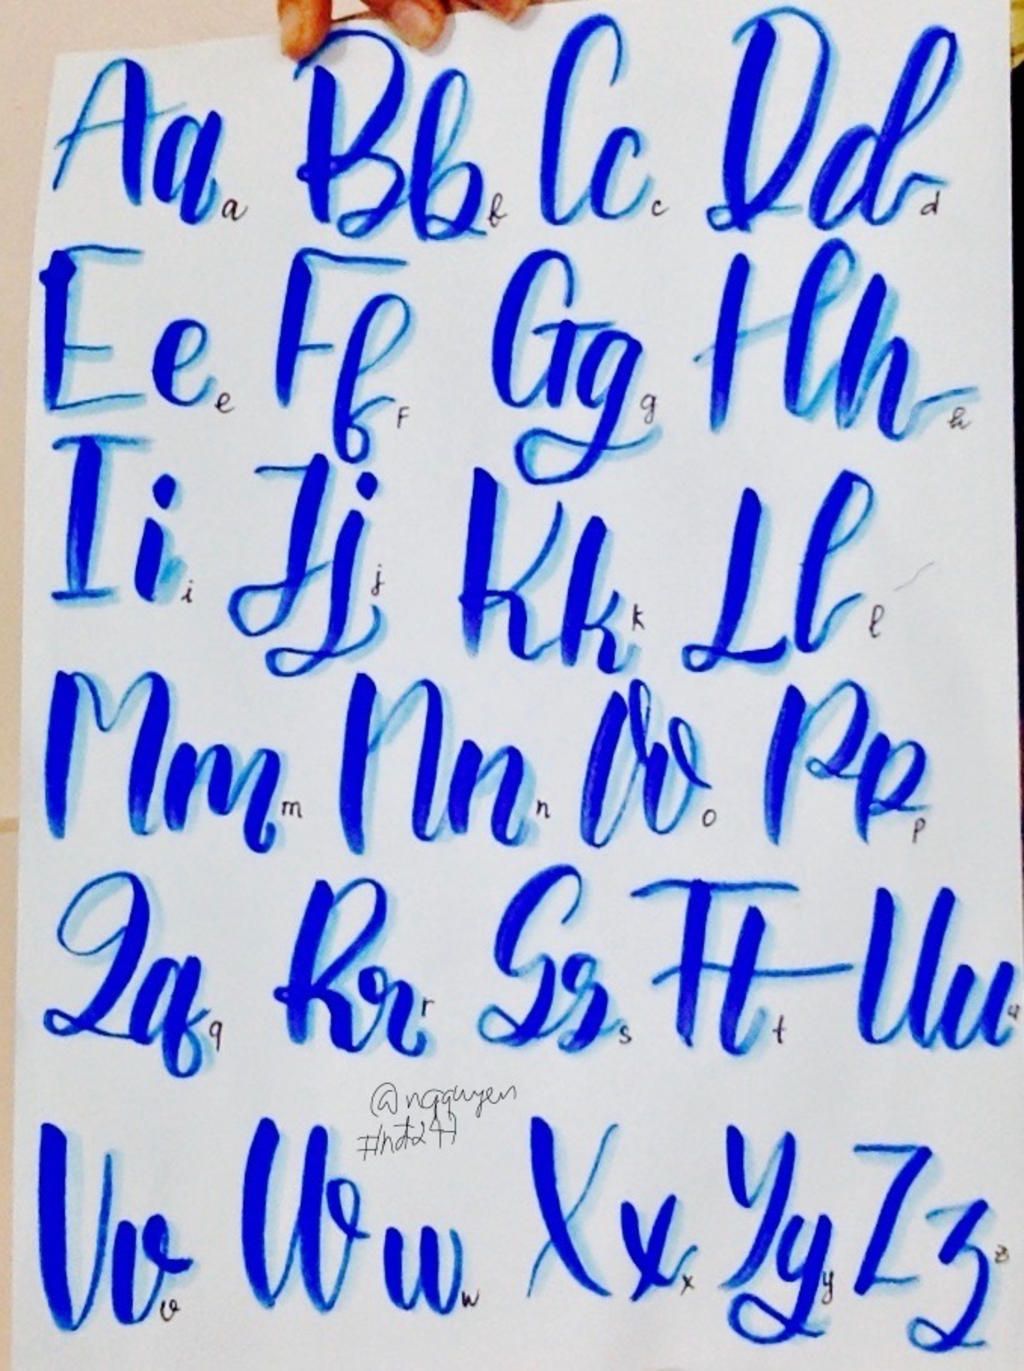 Aa a Bb b Cc c Dd d
Ee e Ff F Gg g Hh h
Ii i Jj j Kk k Ll l
Mm m Nn n Oo o Pp p
Qq q Rr r Ss s Tt t Uu u
@ngquyen
#hdt247
Vv v Ww w Xx x Yy y Zz z